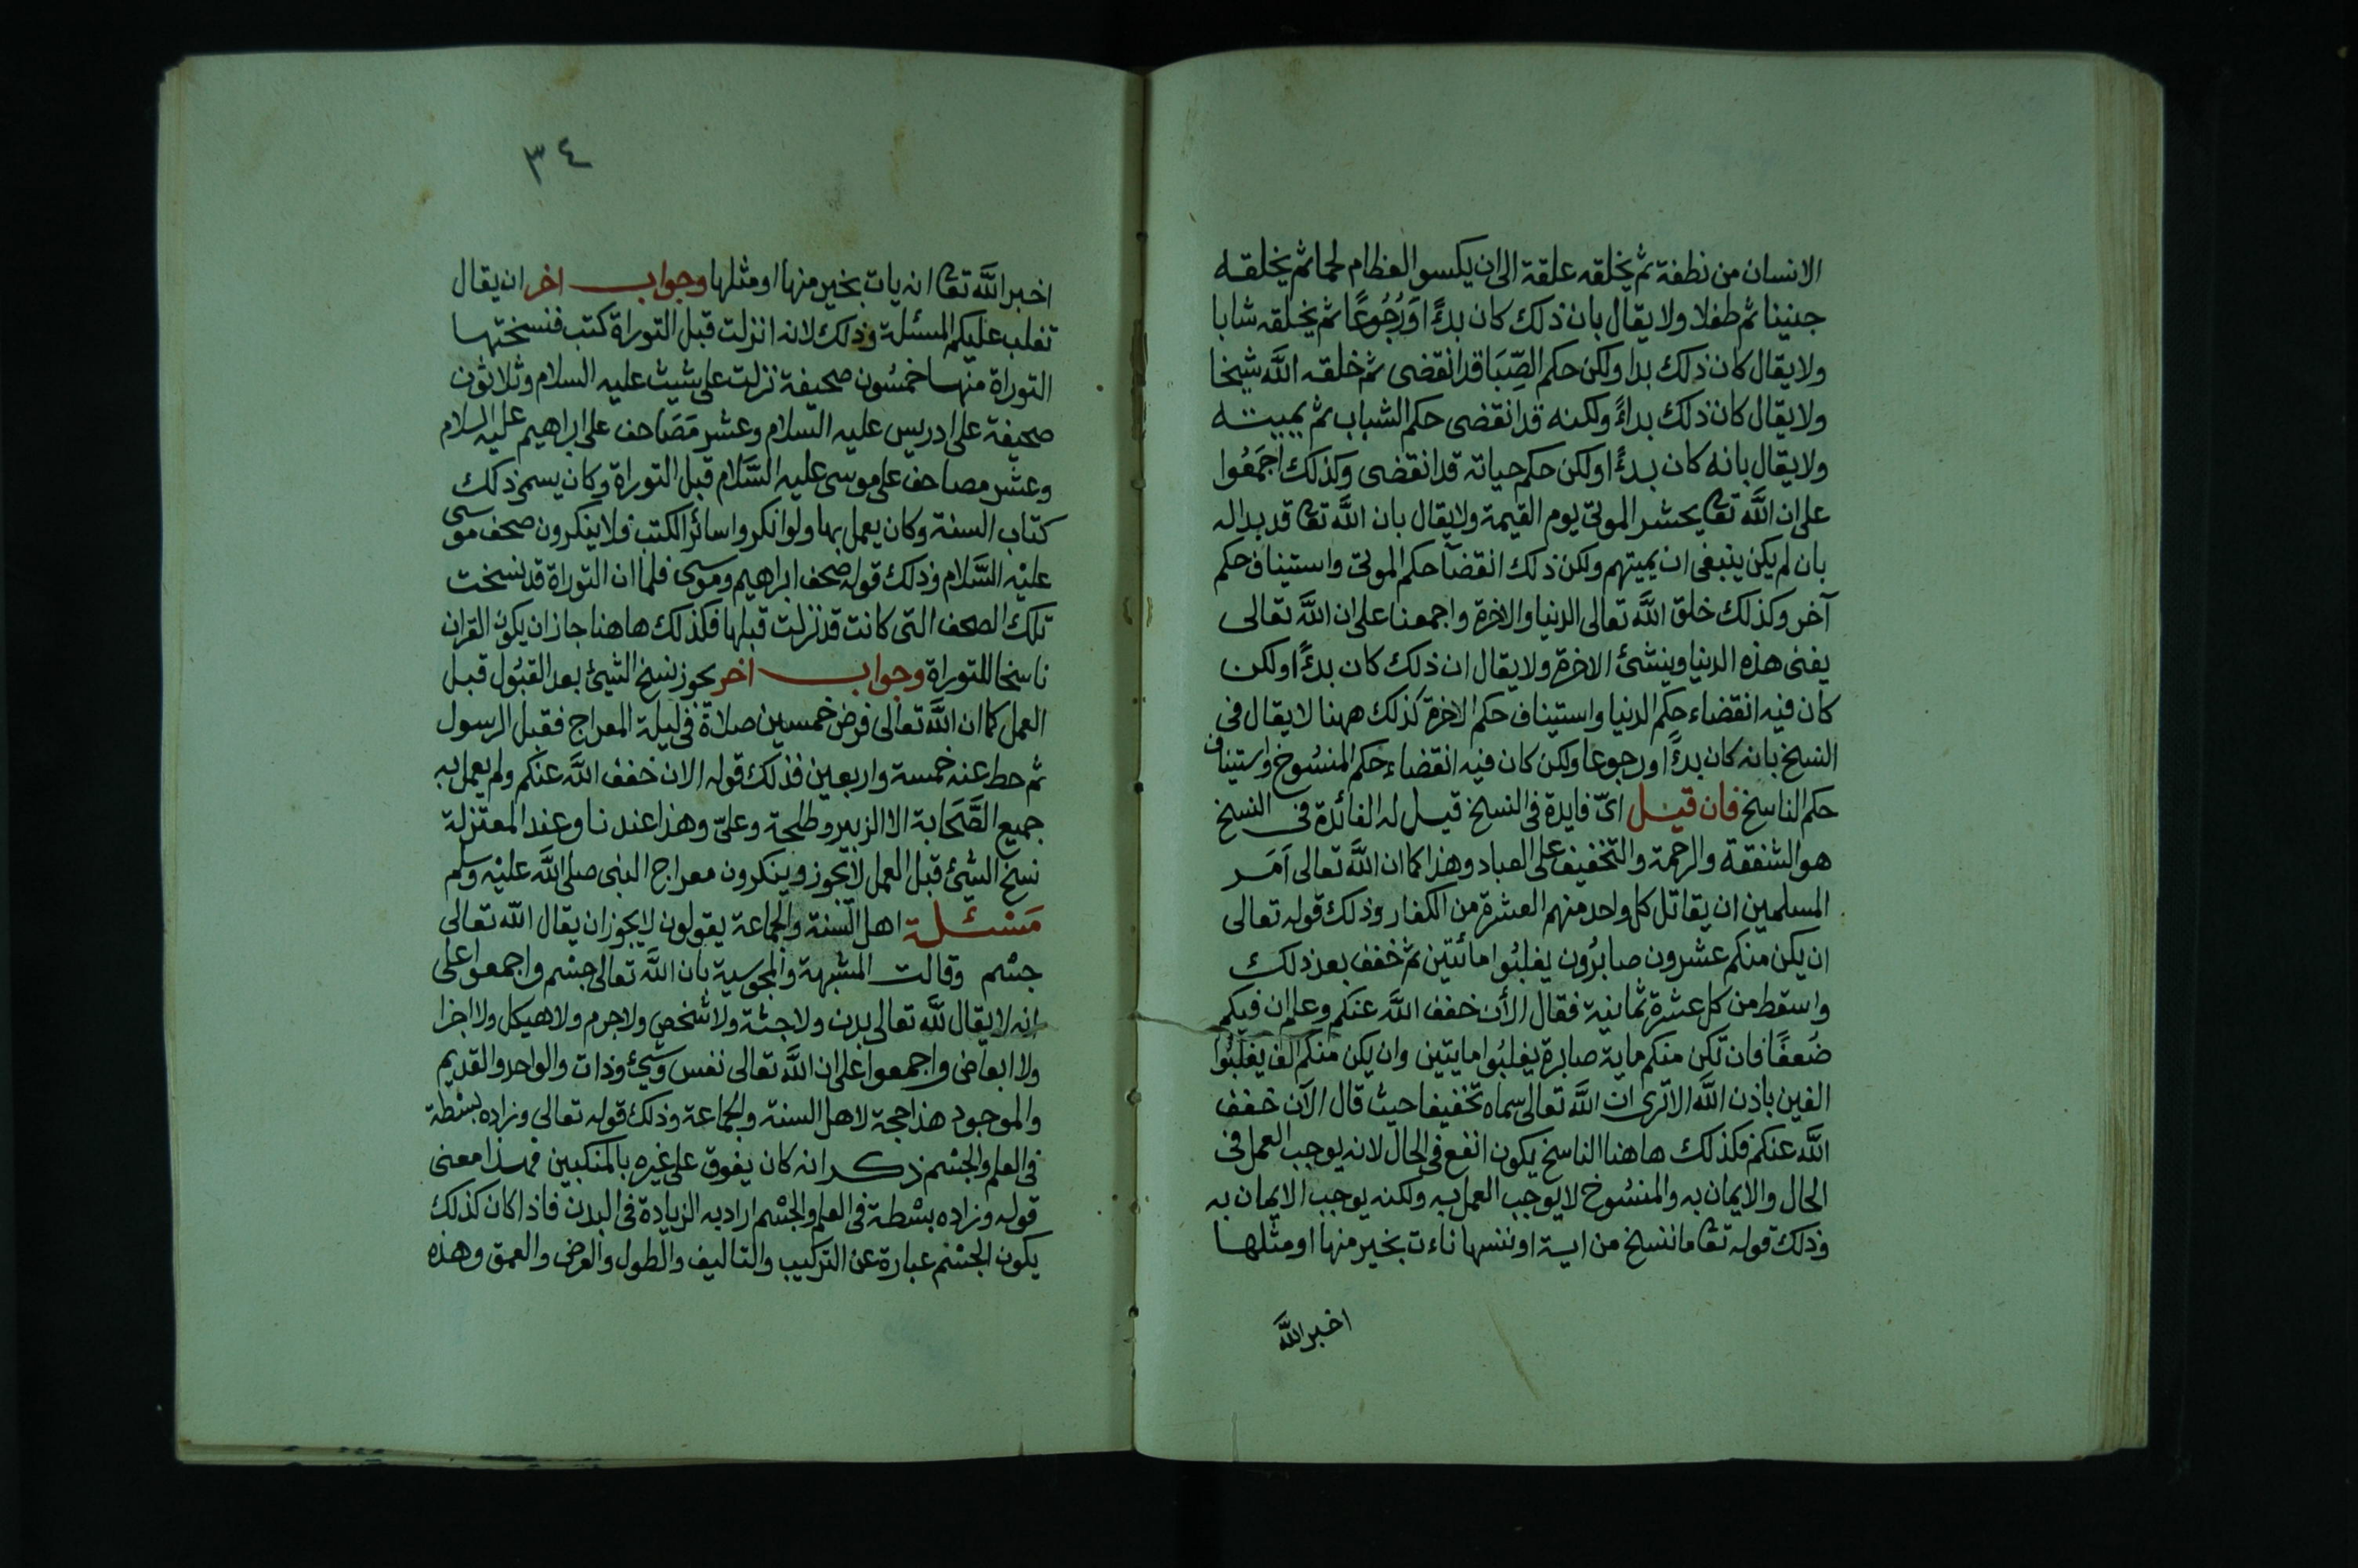 الانسان من نطفة ثم يخلقه علقة الى ان يكسو العظام لحما ثم يخلقه
جنينا ثم طفلا ولا يقال بان ذلك كان بدءً اوَرُجُوعًا ثم يخلقه شابا
ولا يقال كان ذلك بدا ولكن حكم الصِّبَا قد انقضى ثم خلقه اللَّه شيخا
ولا يقال كان ذلك بداءً ولكنه قد انقضى حكم الشباب ثم يميته
ولا يقال بانه كان بدءًا ولكن حكم حياته قد انقضى وكذلك اجمَعُوا
على ان اللَّه تعا يحشر الموتى يوم القيمة ولا يقال بان اللَّه تعا قد بدا له
بان لم يكن ينبغى ان يميتهم ولكن ذلك انقضآ حكم الموتى واستيناف حكم
آخر وكذلك خلق اللَّه تعالى الدنيا والاخرة واجمعنا على ان اللَّه تعالى
يفنى هذه الدنيا وينشئ الاخرة ولا يقال ان ذلك كان بدءًا ولكن
كان فيه انقضاء حكم الدنيا واستيناف حكم الاخرة كذلك ههنا لا يقال فى
النسخ بانه كان بدءًا ورجوعا ولكن كان فيه انقضاء حكم المنسُوخ واستيناف
حكم الناسخ فان قيل اىّ فايدة فى النسخ قيل له الفائدة فى النسخ
هو الشفقة والرحمة والتخفيف على العباد وهذا كما ان اللَّه تعالى اَمَر
المسلمين ان يقاتل كل واحد منهم العشرة من الكفار وذلك قوله تعالى
ان يكن منكم عشرون صابرُون يغلبُوا مائتين ثم خفف بعد ذلك
واسقط من كل عشرة ثمانية فقال الأن خفف اللَّه عنكم وعلم ان فيكم
ضُعفًا فان تكن منكم ماية صابرة يغلبُوا مايتين وان يكن منكم الف يغلبُوا
الفين باذن اللَّه الا ترى ان اللَّه تعالى سماه تخفيفا حيث قال الآن خفف
اللَّه عنكم فكذلك هاهنا الناسخ يكون انفع فى الحال لانه يوجب العمل فى
الحال والايمان به والمنسُوخ لا يوجب العمل به ولكنه يوجب الايمان به
وذلك قوله تعا ما ننسخ من اية او ننسها ناءت بخير منها او مثلها
اخبر اللَّه
٣٤
اخبر اللَّه تعا انه يات بخير منها او مثلها وجواب اخر ان يقال
تغلب عليكم المسئلة وذلك لانه انزلت قبل التوراة كتب فنسختها
التوراة منها خمسُون صحيفة نزلت على شيث عليه السلام وثلاثون
صحيفة على ادريس عليه السلام وعشر مَصَاحف على ابراهيم عليه السلام
وعشر مصاحف على موسى عليه السَّلام قبل التوراة وكان يسمى ذلك
كتاب السنة وكان يعمل بها ولو انكروا سائر الكتب فلا ينكرون صحف موسى
عليْه السَّلام وذلك قوله صحف ابراهيم وموسى فلما ان التوراة قد نسخت
تلك الصحف التى كانت قد نزلت قبلها فكذلك هاهنا جاز ان يكون القران
ناسخا للتوراة وجواب اخر يجوز نسخ الشيئ بعد القبُول قبل
العمل كما ان اللَّه تعالى فرض خمسين صلاة فى ليلة المعراج فقبل الرسول
ثم حط عنه خمسة واربعين فذلك قوله الان خفف اللَّه عنكم ولم يعمل به
جميع الصَّحَابة الا الزبير وطلحة وعلىّ وهذا عندنا وعند المعتزلة
نسخ الشيئ قبل العمل لا يجوز وينكرون معراج النبى صلى اللَّه عليْه وسلم
مَسْئلة اهل السنة والجماعة يقولون لا يجوز ان يقال اللَّه تعالى
جسْم وقالت المشبهة والمجوسية بان اللَّه تعالى جسْم واجمعوا على
انه لا يقال للَّه تعالى بدن ولا جثة ولا شخص ولا جرم ولا هيكل ولا اجزا
ولا ابعاض واجمعوا على ان اللَّه تعالى نفس وشيئ وذات والواحد والقديم
والموجود هذا حجة لاهل السنة والجماعة وذلك قوله تعالى وزاده بسْطة
فى العلم والجسْم ذكر انه كان يفوق على غيره بالمنكبين فهذا معنى
قوله وزاده بسْطة فى العلم والجسْم اراد به الزيادة فى البدن فاذا كان كذلك
يكون الجسْم عبارة عن التركيب والتاليف والطول والعرض والعمق وهذه